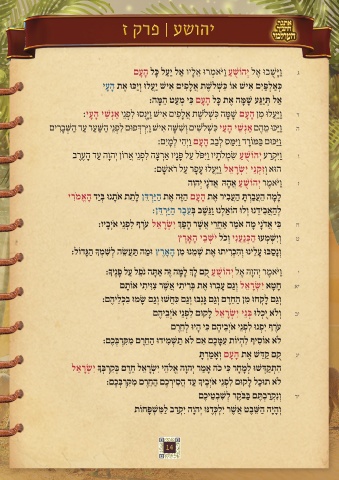 יהושע | פרק ז
ג וַיָּשֻׁבוּ אֶל יְהוֹשֻׁעַ וַיֹּאמְרוּ אֵלָיו אַל יַעַל כָּל הָעָם
כְּאַלְפַּיִם אִישׁ אוֹ כִּשְׁלֹשֶׁת אֲלָפִים אִישׁ יַעֲלוּ וְיַכּוּ אֶת הָעָי
אַל תְּיַגַּע שָׁמָּה אֶת כָּל הָעָם כִּי מְעַט הֵמָּה:
ד וַיַּעֲלוּ מִן הָעָם שָׁמָּה כִּשְׁלֹשֶׁת אֲלָפִים אִישׁ וַיָּנֻסוּ לִפְנֵי אַנְשֵׁי הָעָי:
ה וַיַּכּוּ מֵהֶם אַנְשֵׁי הָעַי כִּשְׁלֹשִׁים וְשִׁשָּׁה אִישׁ וַיִּרְדְּפוּם לִפְנֵי הַשַּׁעַר עַד הַשְּׁבָרִים
וַיַּכּוּם בַּמּוֹרָד וַיִּמַּס לְבַב הָעָם וַיְהִי לְמָיִם:
ו וַיִּקְרַע יְהוֹשֻׁעַ שִׂמְלֹתָיו וַיִּפֹּל עַל פָּנָיו אַרְצָה לִפְנֵי אֲרוֹן יְהוָה עַד הָעֶרֶב
הוּא וְזִקְנֵי יִשְׂרָאֵל וַיַּעֲלוּ עָפָר עַל רֹאשָׁם:
ז וַיֹּאמֶר יְהוֹשֻׁעַ אֲהָהּ אֲדֹנָי יְהוִה
לָמָה הֵעֲבַרְתָּ הַעֲבִיר אֶת הָעָם הַזֶּה אֶת הַיַּרְדֵּן לָתֵת אֹתָנוּ בְּיַד הָאֱמֹרִי
לְהַאֲבִידֵנוּ וְלוּ הוֹאַלְנוּ וַנֵּשֶׁב בְּעֵבֶר הַיַּרְדֵּן:
ח בִּי אֲדֹנָי מָה אֹמַר אַחֲרֵי אֲשֶׁר הָפַךְ יִשְׂרָאֵל עֹרֶף לִפְנֵי אֹיְבָיו:
ט וְיִשְׁמְעוּ הַכְּנַעֲנִי וְכֹל יֹשְׁבֵי הָאָרֶץ
וְנָסַבּוּ עָלֵינוּ וְהִכְרִיתוּ אֶת שְׁמֵנוּ מִן הָאָרֶץ וּמַה תַּעֲשֵׂה לְשִׁמְךָ הַגָּדוֹל:
י וַיֹּאמֶר יְהוָה אֶל יְהוֹשֻׁעַ קֻם לָךְ לָמָּה זֶּה אַתָּה נֹפֵל עַל פָּנֶיךָ:
יא חָטָא יִשְׂרָאֵל וְגַם עָבְרוּ אֶת בְּרִיתִי אֲשֶׁר צִוִּיתִי אוֹתָם
וְגַם לָקְחוּ מִן הַחֵרֶם וְגַם גָּנְבוּ וְגַם כִּחֲשׁוּ וְגַם שָׂמוּ בִכְלֵיהֶם:
יב וְלֹא יֻכְלוּ בְּנֵי יִשְׂרָאֵל לָקוּם לִפְנֵי אֹיְבֵיהֶם
עֹרֶף יִפְנוּ לִפְנֵי אֹיְבֵיהֶם כִּי הָיוּ לְחֵרֶם
לֹא אוֹסִיף לִהְיוֹת עִמָּכֶם אִם לֹא תַשְׁמִידוּ הַחֵרֶם מִקִּרְבְּכֶם:
יג קֻם קַדֵּשׁ אֶת הָעָם וְאָמַרְתָּ
הִתְקַדְּשׁוּ לְמָחָר כִּי כֹה אָמַר יְהוָה אֱלֹהֵי יִשְׂרָאֵל חֵרֶם בְּקִרְבְּךָ יִשְׂרָאֵל
לֹא תוּכַל לָקוּם לִפְנֵי אֹיְבֶיךָ עַד הֲסִירְכֶם הַחֵרֶם מִקִּרְבְּכֶם:
יד וְנִקְרַבְתֶּם בַּבֹּקֶר לְשִׁבְטֵיכֶם
וְהָיָה הַשֵּׁבֶט אֲשֶׁר יִלְכְּדֶנּוּ יְהוָה יִקְרַב לַמִּשְׁפָּחוֹת
14